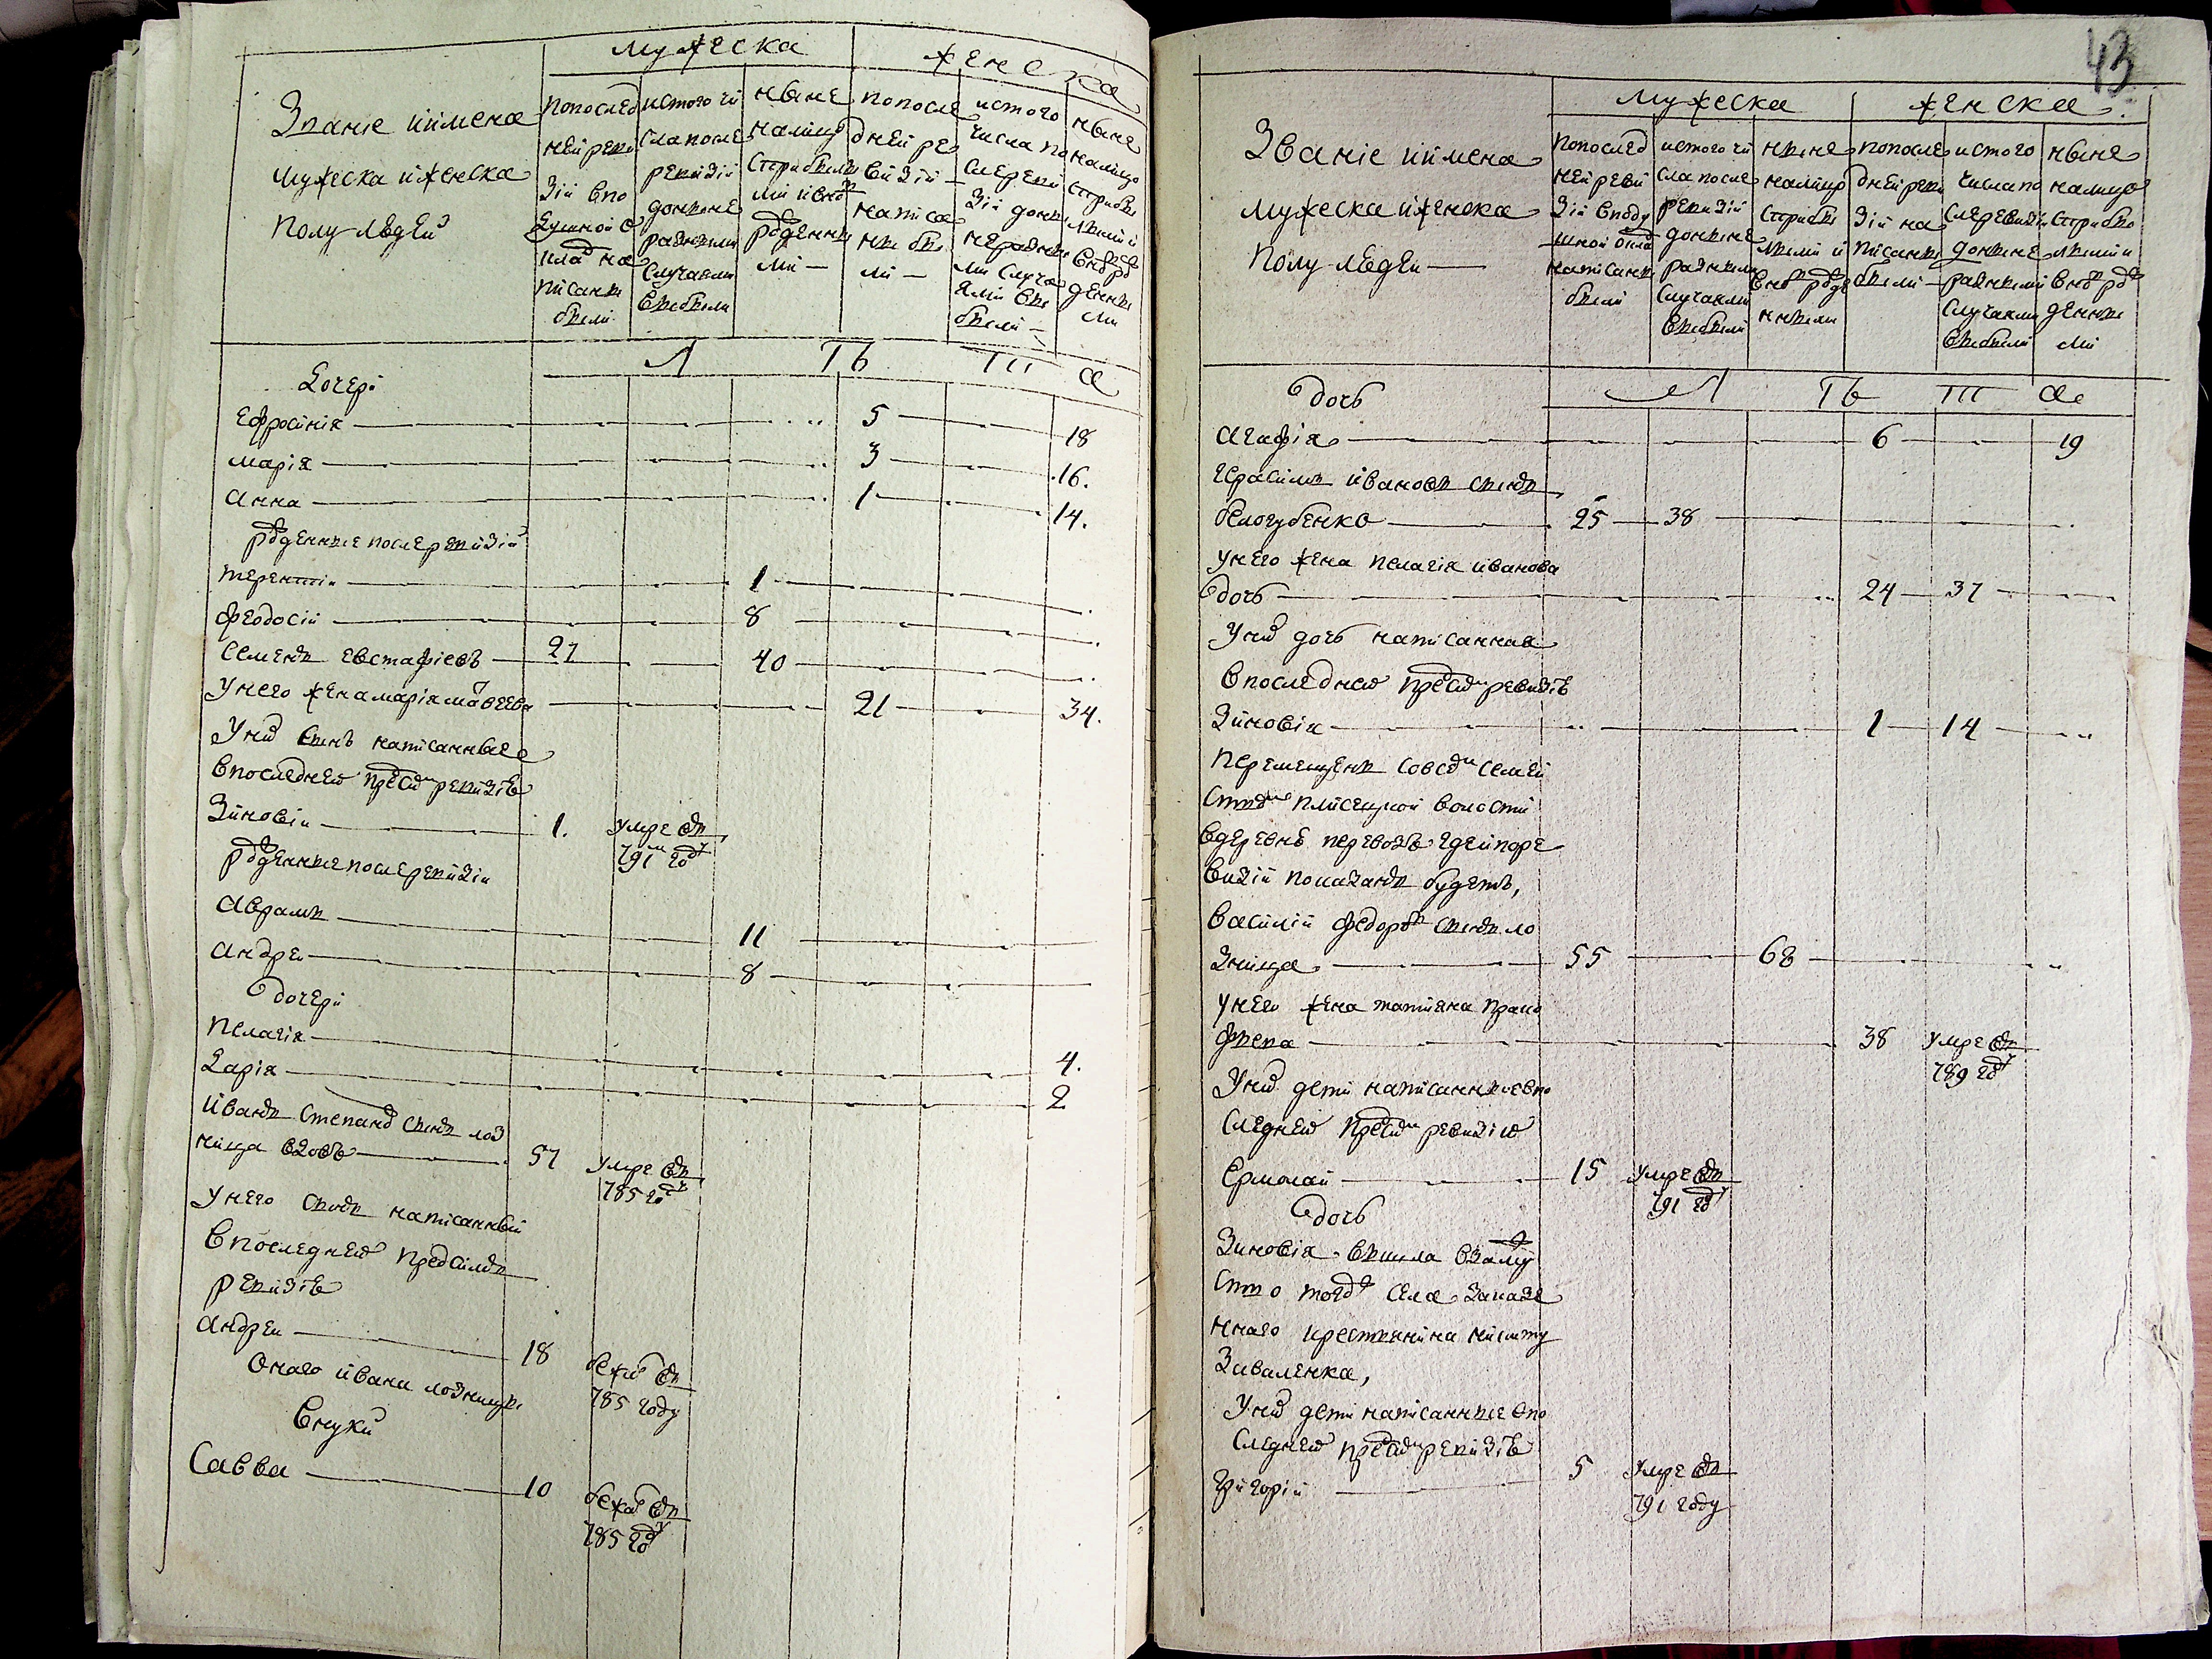 мужеска
женска
Званіе иимена
мужеска иженска
полу людей
попослед
ней реви
зіи впо
душной о
клад на
писаны
были
истого чи
сла после
ревизіи
доныне
разными
случаями
выбыли
ныне
налицо
старыбылы
ми ивновь
рожденны
ми
попосле
дней ре
визіи
написа
ны бы
ли
истого
числа по
сле реви
зіи доны
не разны
ми случа
ями вы
были
ныне
налицо
старыбы
лыми и
вновь ро
жденны
ми
Л Тъ Ти а
Дочери
Ефросинія 5 18
марія 3 16.
анна 1 14.
рожденные после ревизіи
терентіи 1
феодосій 8
Семенъ евстафіевъ 27 40
Унего жена марія матвеева 21 34.
Уних сынъ написанные
впоследней пред сим ревизіе
Зиновіи 1. умре въ
791м году
рожденные после ревизіи
аврамъ 11
андреи 8
дочери
пелагія 4.
Дарія 2
иванъ степанов сынъ лоз
ница вдовъ 57 умре въ
785 году
Унего сынъ написанный
впоследней предсимъ
ревизіе
андреи 18 бежал въ
785 году
Онаго ивана лозницы
внуки
Савва 10 бежал въ
785 году
43
мужеска
женска
Званіе иимена
мужеска иженска
полу людеи
попослед
ней реви
зіи вподу
шной оклад
написаны
были
истого чи
сла после
ревизіи
доныне
разными
случаями
выбыли
ныне
налицо
старыбы
лыми и
вновь рожде
нными
попосле
дней реви
зіи на
писаны
были
истого
числа по
сле ревизіи
доныне
разными
случаями
выбыли
ныне
налицо
старыбы
лыми и
вновь ро
жденны
ми
Л Тъ Ти а
дочь
агафія 6 19
герасимъ ивановъ сынъ
белогубенко 25 38
унего жена пелагія иванова
дочь 24 37
Уних дочь написанная
впоследней пред сим ревизіе
Зиновія 1 14
перемещенъ совсем семей
ством плисецкой волости
вдеревню перевозъ гдей поре
визіи показанъ будетъ,
василій федоров сынъ ло
зница 55 68
унего жена татіяна проко
фьева 38 умре въ
789 году
Уних дети написанные впо
следней пред сим ревизіи
Ермолай 15 умре въ
791 году
дочь
Зиновія вышла взамуж
ство тогож села заказе
ннаго крестьянина никиту
Зиваленка,
Уних дети написанные впо
следней пред сим ревизіе
Григорій 5 умре въ
791 году